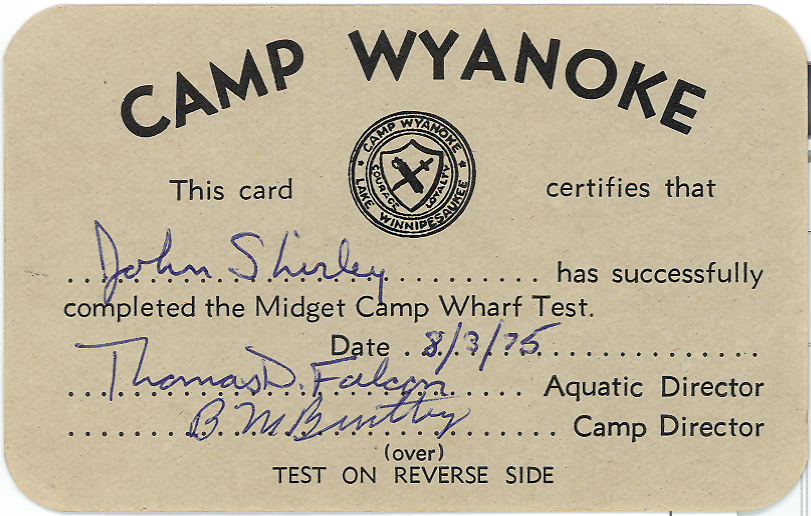 CAMP WYANOKE
CAMP WYANOKE
COURAGE LOYALTY
LAKE WINNIPESAUKEE
This card certifies that
John Shirley has successfully
completed the Midget Camp Wharf Test.
Date 8/3/75
Thomas D. Falcon Aquatic Director
B M Camp Director
(over)
TEST ON REVERSE SIDE